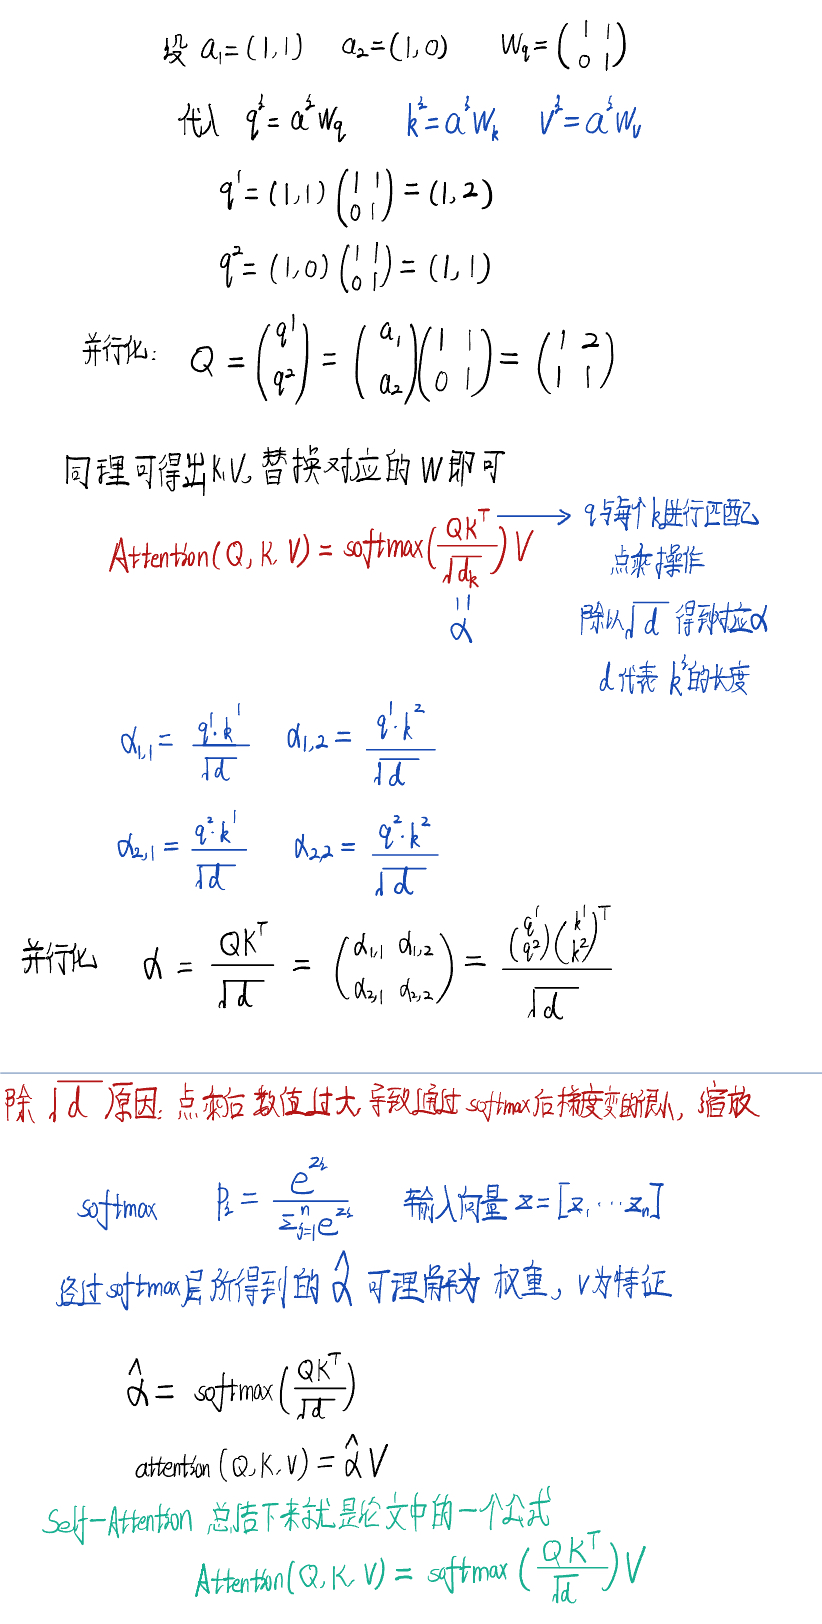 设 a₁=(1,1) a₂=(1,0) Wq=(1 1
0 1)
代入 qⁱ=aⁱWq kⁱ=aⁱWk vⁱ=aⁱWv
q¹=(1,1)(1 1
0 1)=(1,2)
q²=(1,0)(1 1
0 1)=(1,1)
并行化: Q=(q¹
q²)=(a₁
a₂)(1 1
0 1)=(1 2
1 1)
同理可得出K,V,替换对应的W即可
Attention(Q,K,V)=softmax(QKᵀ/√dk)V → q与每个k进行匹配
点乘操作
=α
除以√d 得到对应α
d代表 kⁱ的长度
α₁,₁=q¹·k¹/√d α₁,₂=q¹·k²/√d
α₂,₁=q²·k¹/√d α₂,₂=q²·k²/√d
并行化 α=QKᵀ/√d=(α₁,₁ α₁,₂
α₂,₁ α₂,₂)=(q¹
q²)(k¹
k²)ᵀ/√d
除√d原因:点乘后数值过大,导致通过softmax后梯度变的很小,缩放
softmax pᵢ=e^zᵢ/Σⁿⱼ₌₁e^zⱼ 输入向量 z=[z₁...zₙ]
经过softmax层所得到的α̂可理解为 权重, v为特征
α̂=softmax(QKᵀ/√d)
attention(Q,K,V)=α̂V
Self-Attention 总结下来就是论文中的一个公式
Attention(Q,K,V)=softmax(QKᵀ/√d)V